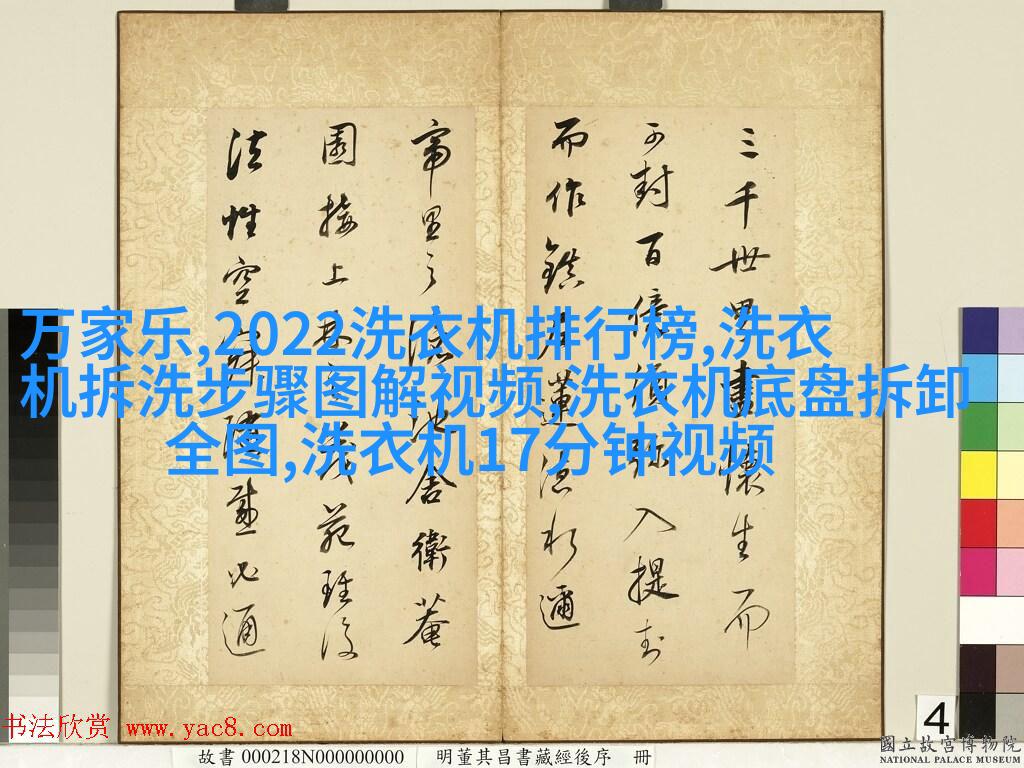 三千世界盡懷生而
可封百億須彌入提封
而作鎮蓮於邇
里之池舍衛菴
園接上林茂苑
法性空隨感以通
万家乐,2022洗衣机排行榜,洗衣
机拆洗步骤图解视频,洗衣机底盘拆卸
全图,洗衣机17分钟视频
书法欣赏 www.yac8.com
故書 000218N000000000 明董其昌書藏經後序 冊
4
國立故宮博物院
NATIONAL PALACE MUSEUM